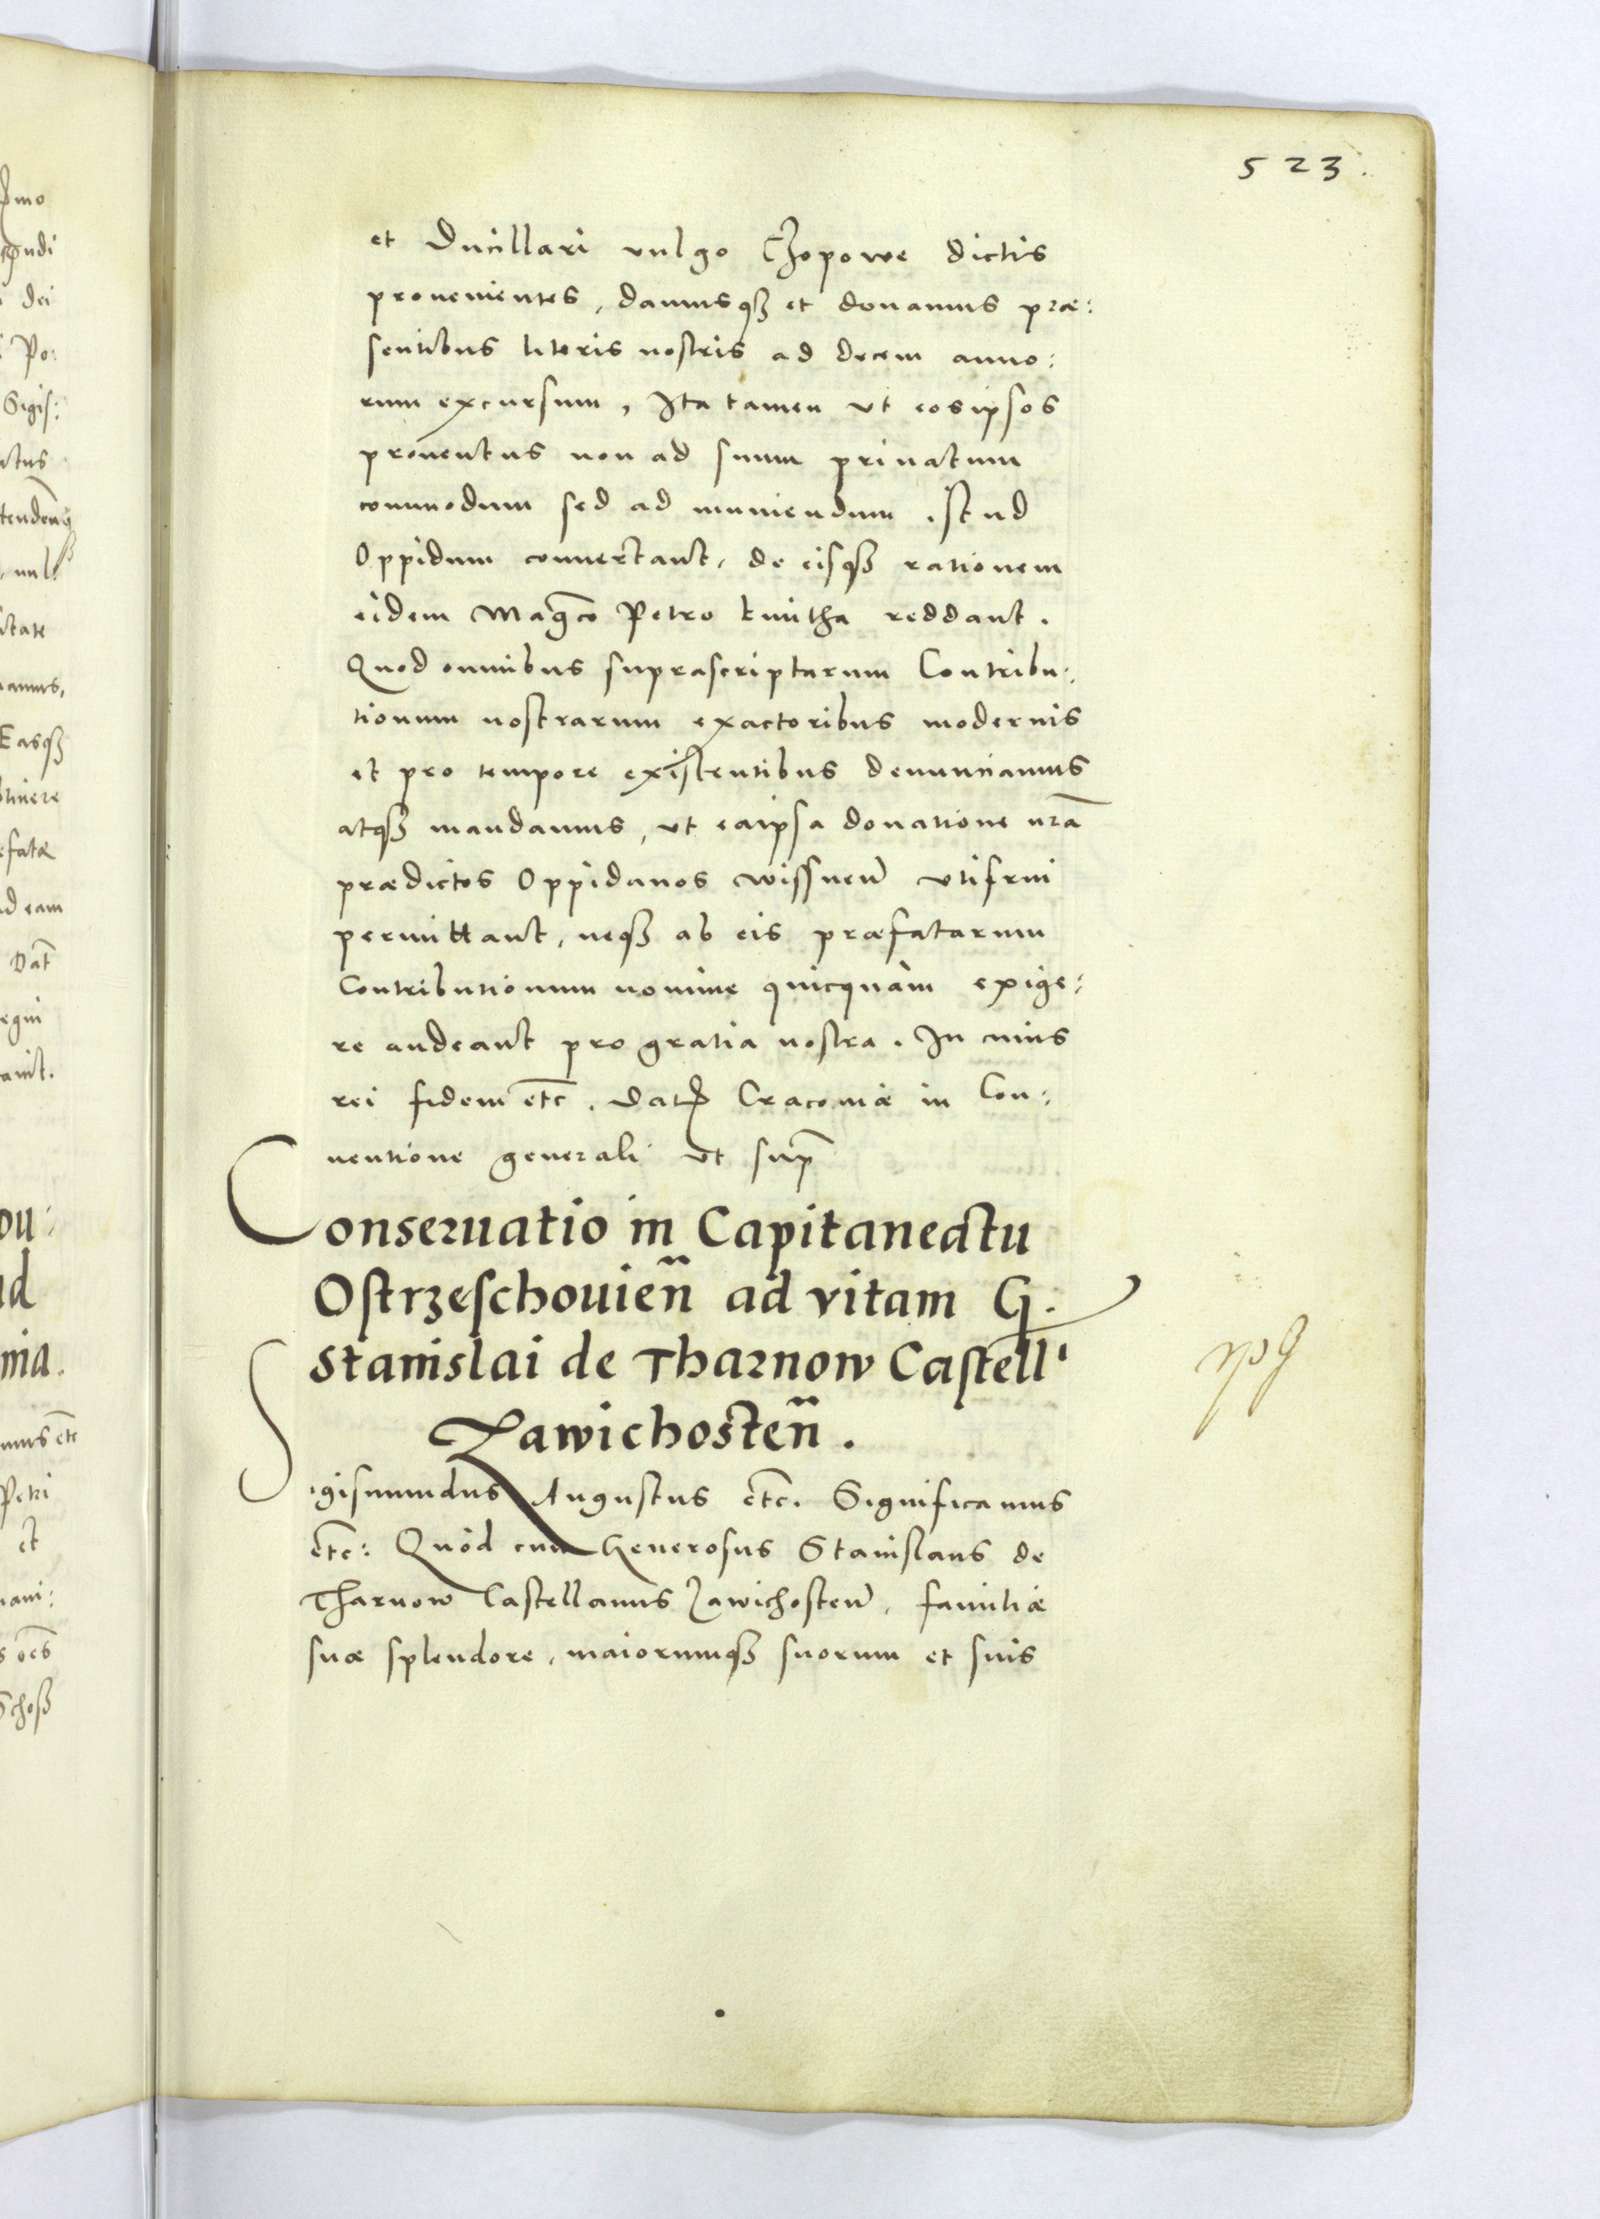 523.
et Ducillari vulgo Czopowe dictis
prouenientes, damusq3 et donamus præ:
sentibus literis nostris ad decem anno:
rum excursum, Ita tamen vt eosipsos
prouentus non ad suum priuatum
commodum sed ad muniendum istud
Oppidum conuertant, de eisq3 rationem
eidem Mag͞co Petro kmitha reddant.
Quod omnibus suprascriptarum Contribu:
tionum nostrarum exactoribus modernis
et pro tempore existentibus denunciamus
atq3 mandamus, vt eaipsa donatione nrã
prædictos Oppidanos wissneñ vtifrui
permittant, neq3 ab eis præfatarum
Contributionum nomine quicquàm exige:
re audeant pro gratia nostra. In cuius
rei fidem etc̃. Datꝭ Cracouiæ in Con:
uentione generali vt sup̃
Conseruatio in Capitaneatu
Ostrzeschouieñ ad vitam G.
Stanislai de Tharnow Castell'
Zawichosteñ.
Sigismundus Augustus etc̃. Significamus
etc̃: Quòd cum Generosus Stanislaus de
Tharnow Castellanus Zawichosteñ, familiæ
suæ splendore, maiorumq3 suorum et suis